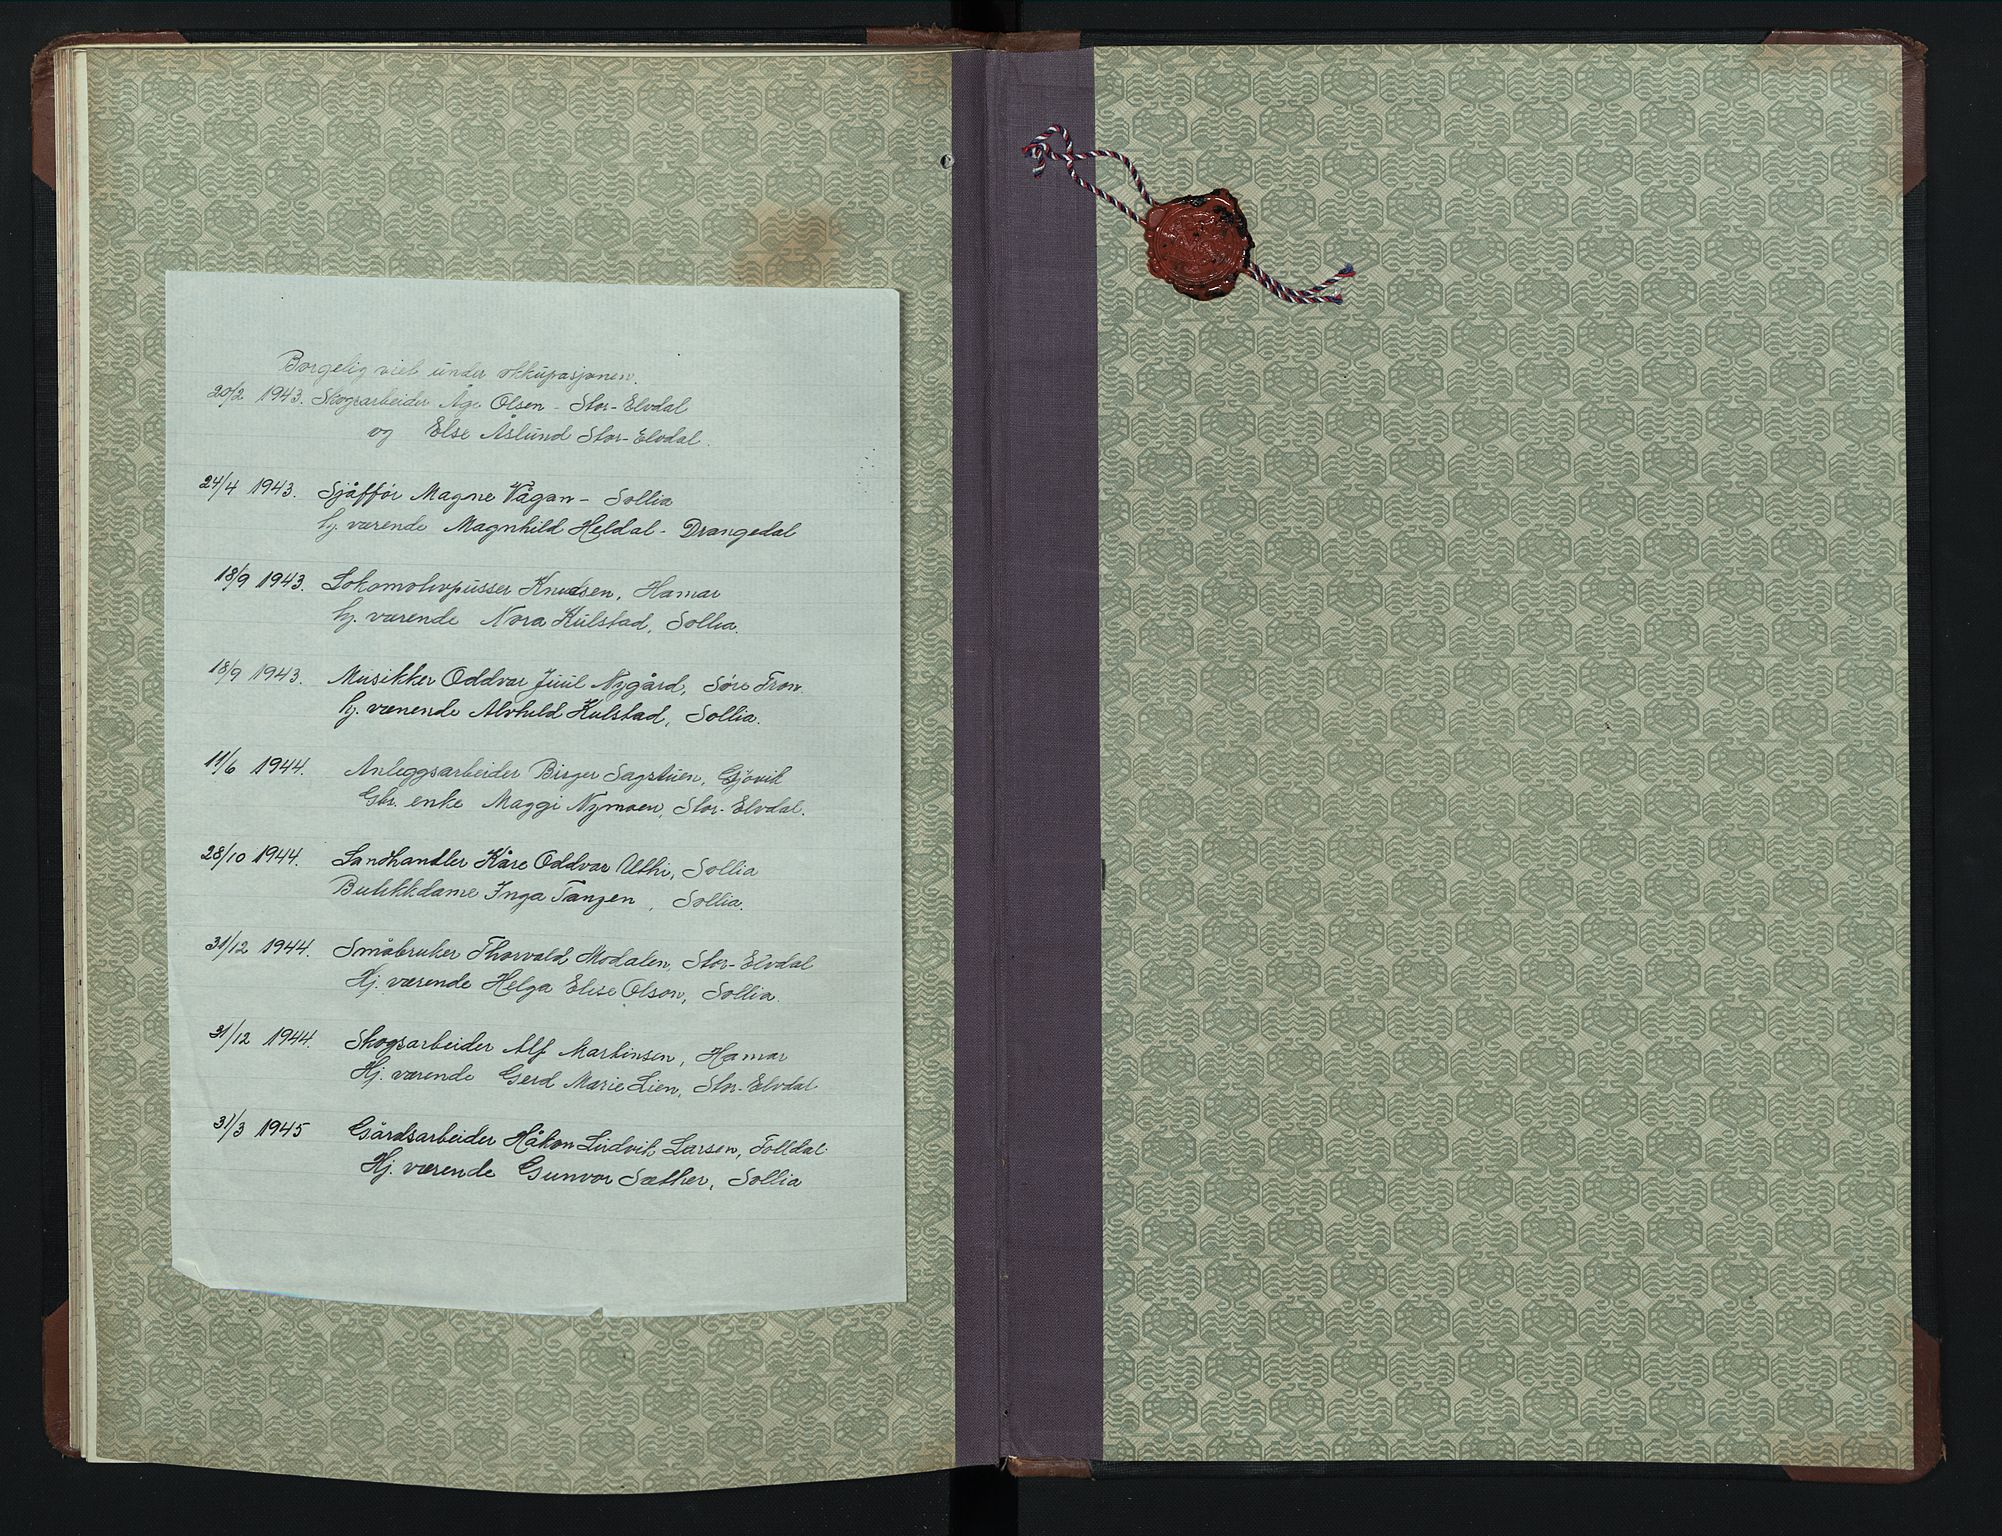 Borgelig viet under okkupasjonen.
20/2 1943. Skogsarbeider Åge Olsen - Stor-Elvdal
og Else Åslund Stor-Elvdal.
24/4 1943. Sjåffør Magne Vågan - Sollia
hj. værende Magnhild Heldal - Drangedal
18/9 1943. Lokomotivpusser Knudsen, Hamar
hj. værende Nora Kulstad, Sollia.
18/9 1943. Musikker Oddvar Juul Nygård, Søre Fron.
hj. værende Alvhild Kulstad, Sollia.
11/6 1944. Anleggsarbeider Birger Sagstuen, Gjøvik
Gbr. enke Maggi Nymoen, Stor-Elvdal.
28/10 1944. Landhandler Kåre Oddvar Uthi, Sollia
Butikkdame Inga Tangen, Sollia.
31/12 1944. Småbruker Thorvald Modalen, Stor-Elvdal
Hj. værende Helga Elise Olson, Sollia.
31/12 1944. Skogsarbeider Alf Martinsen, Hamar
Hj. værende Gerd Marie Lien, Stor-Elvdal
31/3 1945 Gårdsarbeider Håkon Ludvik Larsen, Folldal
Hj. værende Gunvor Sæther, Sollia